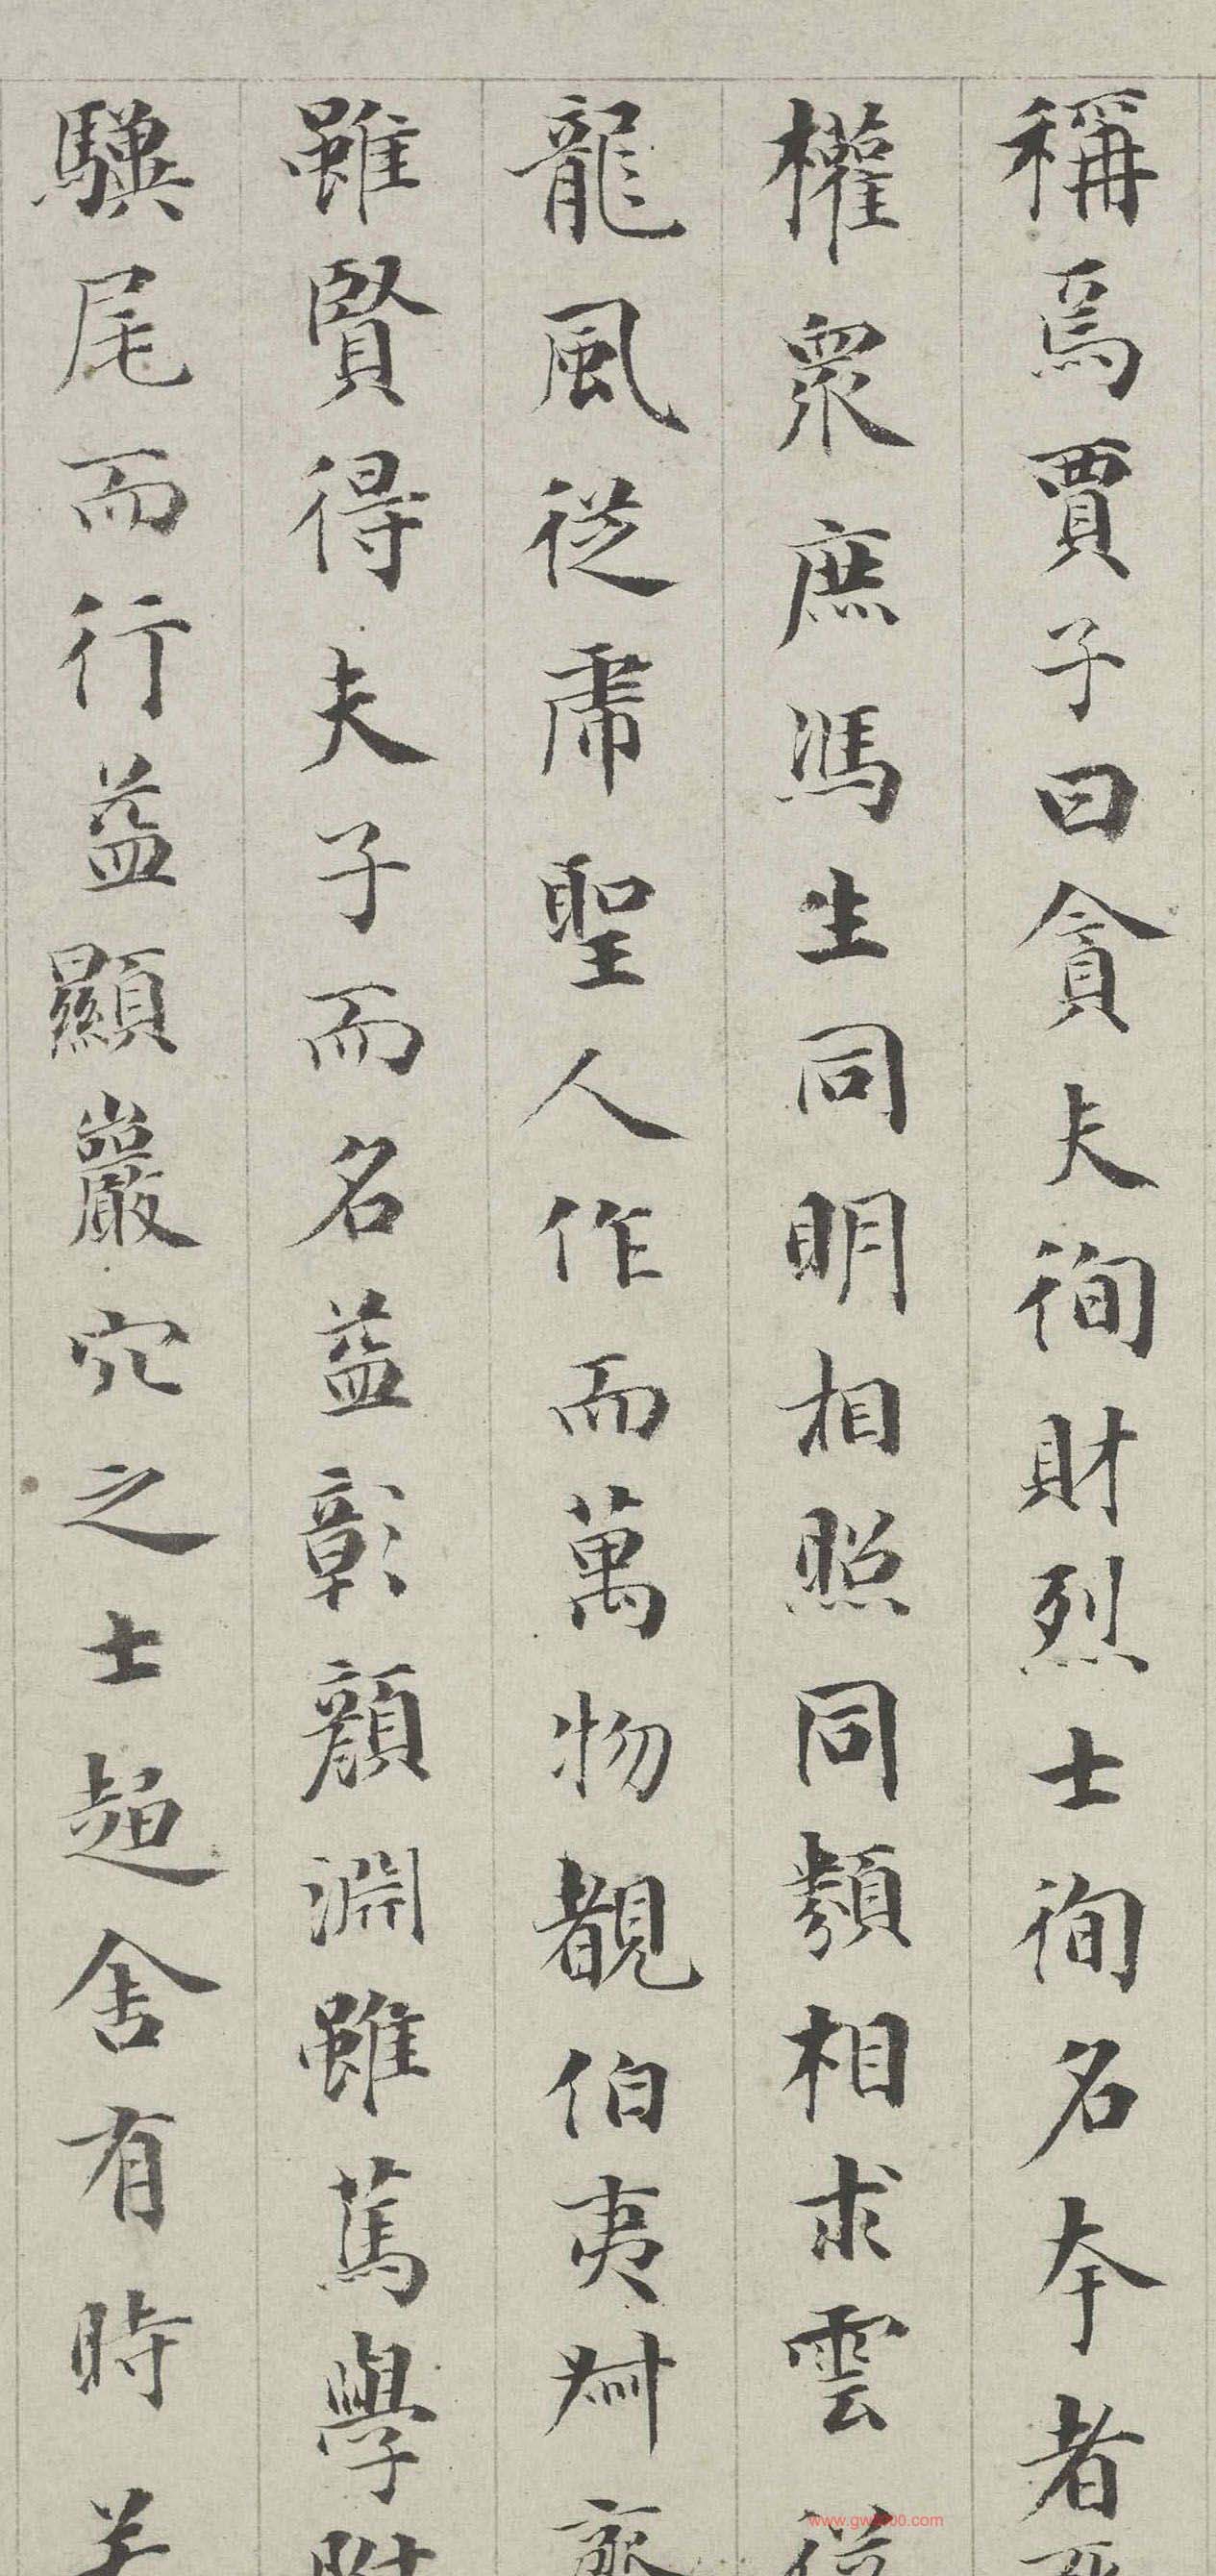 稱焉賈子曰貪夫徇財烈士徇名夸者死
權眾庶馮生同明相照同類相求雲從
龍風從虎聖人作而萬物覩伯夷叔齊
雖賢得夫子而名益彰顏淵雖篤學附
驥尾而行益顯巖穴之士趨舍有時若